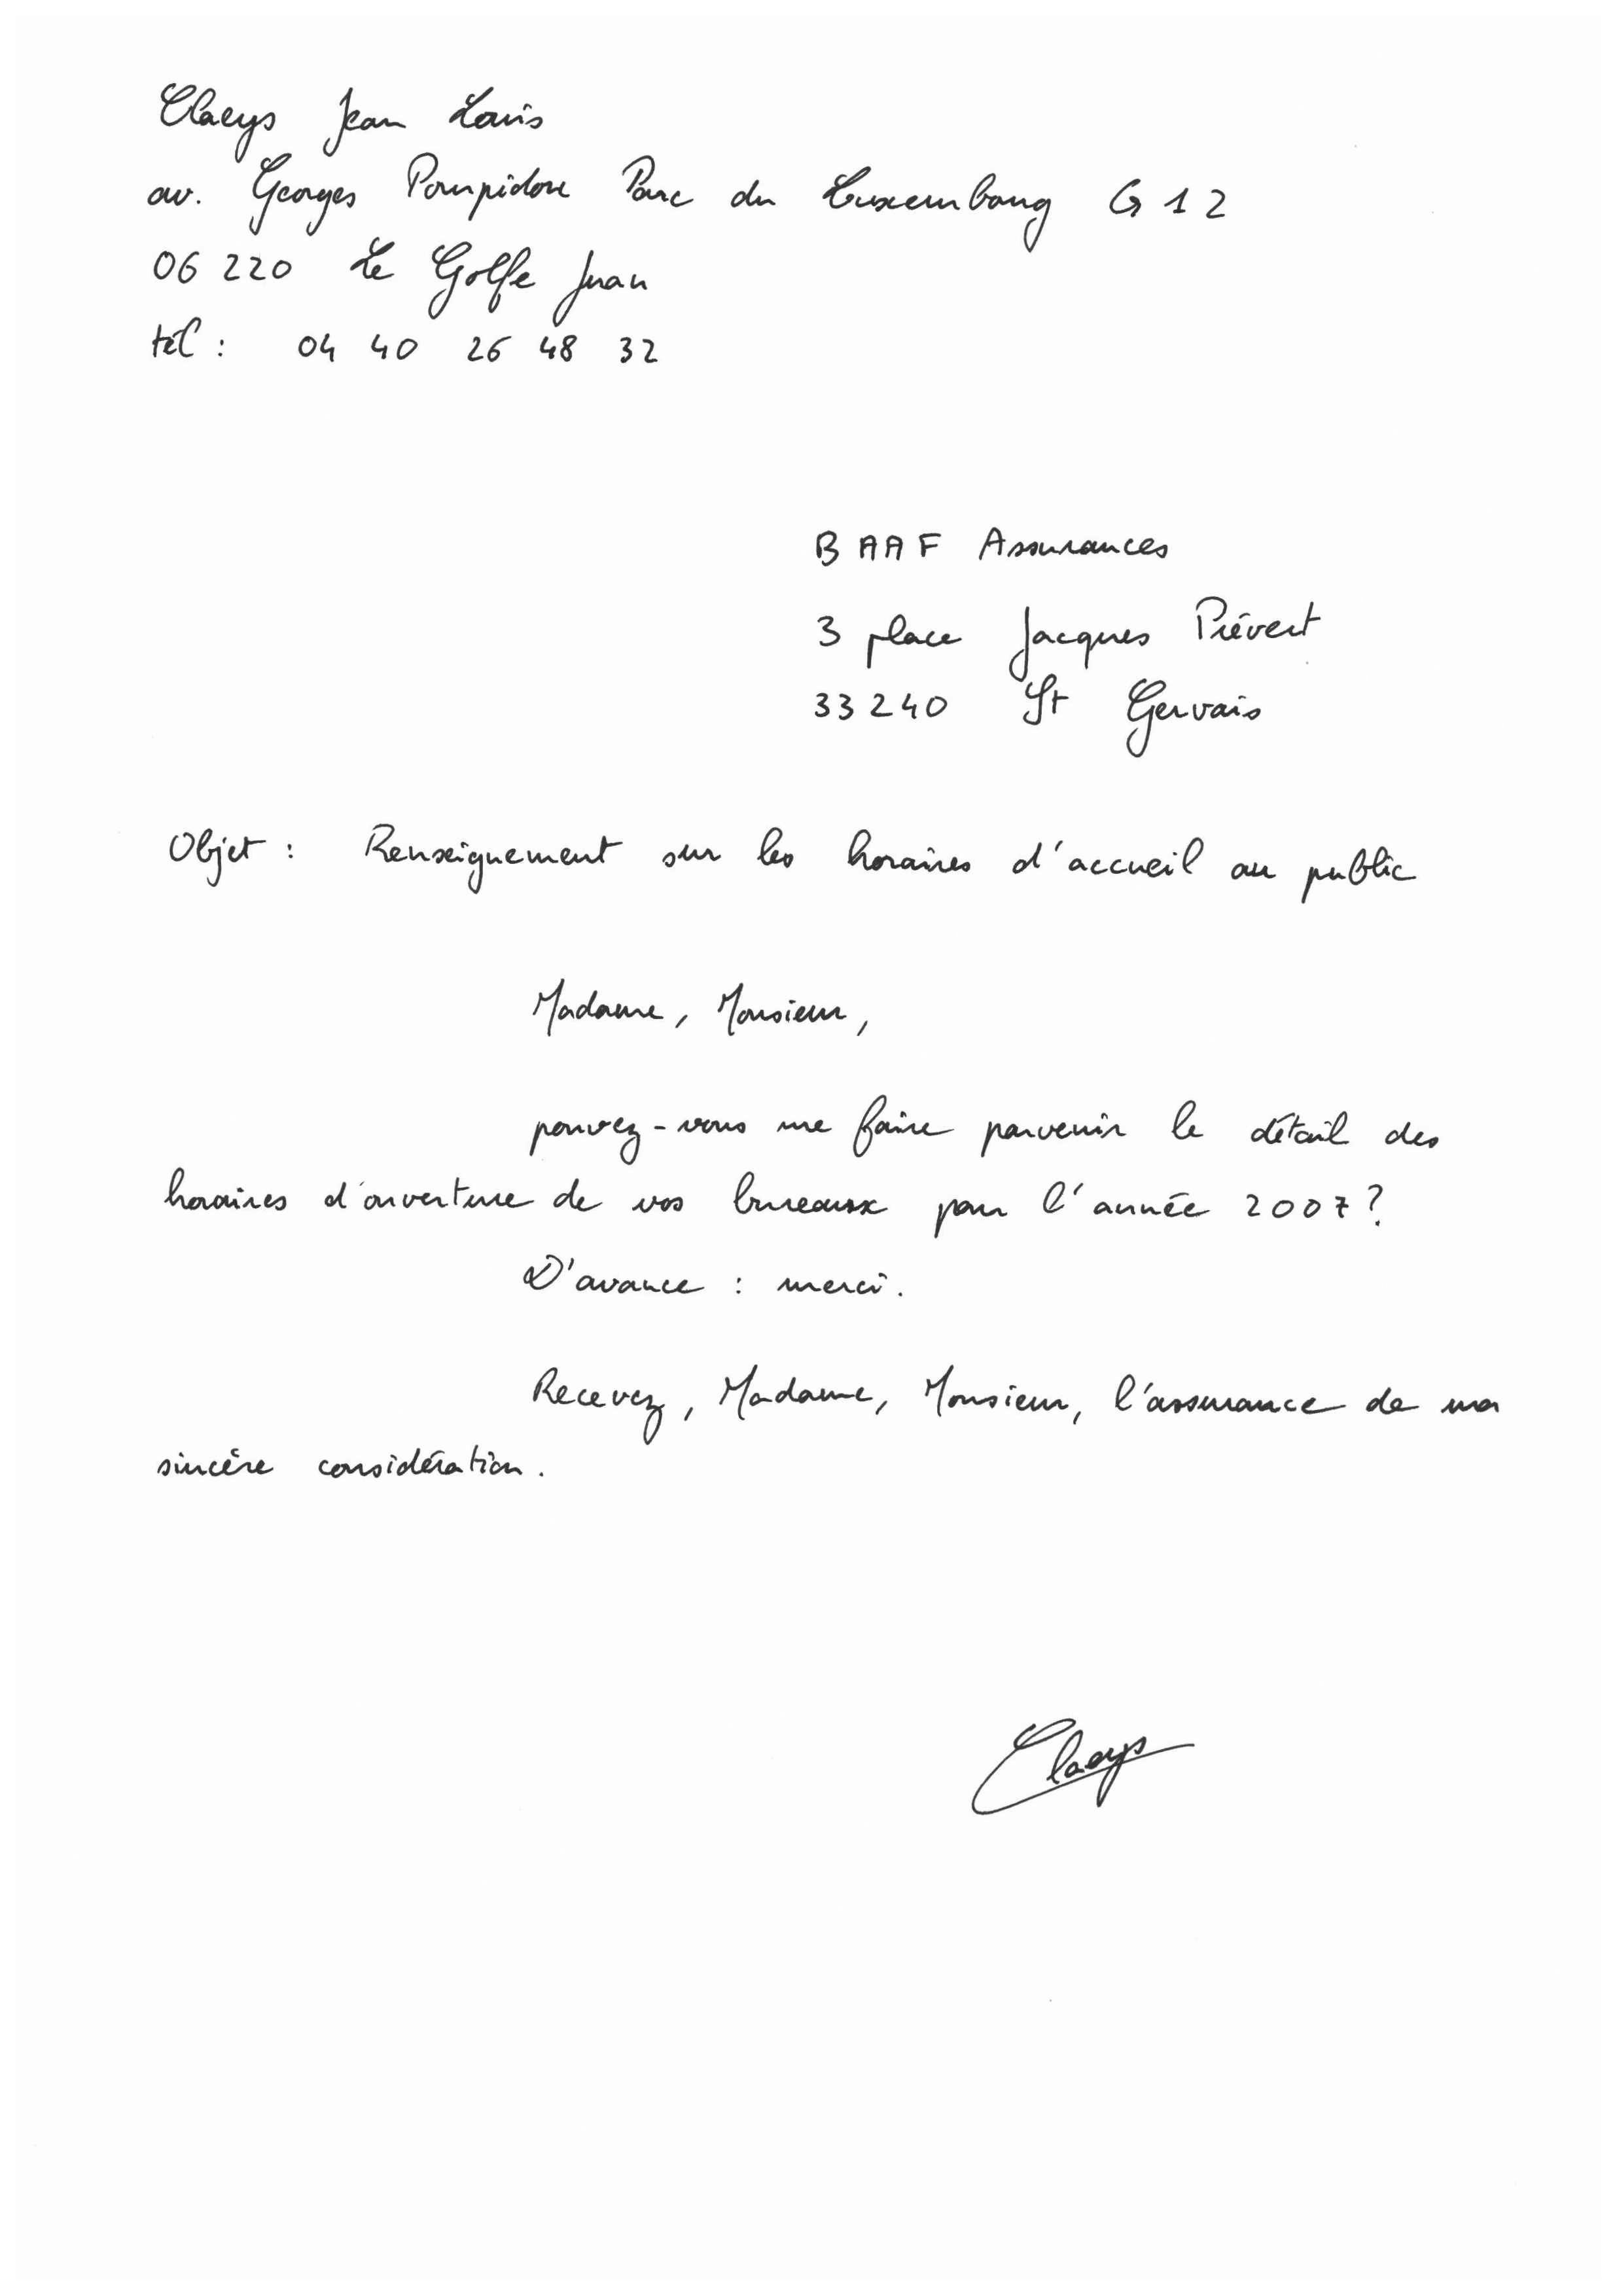 Claeys Jean Louis
av. Georges Pompidou Parc du Luxembourg G12
06 220 Le Golfe Juan
tél : 04 40 26 48 32
BAAF Assurances
3 place Jacques Prévert
33240 St Gervais
Objet : Renseignement sur les horaires d'accueil au public
Madame, Monsieur,
pouvez-vous me faire parvenir le détail des
horaires d'ouverture de vos bureaux pour l'année 2007 ?
D'avance : merci.
Recevez, Madame, Monsieur, l'assurance de ma
sincère considération.
Claeys